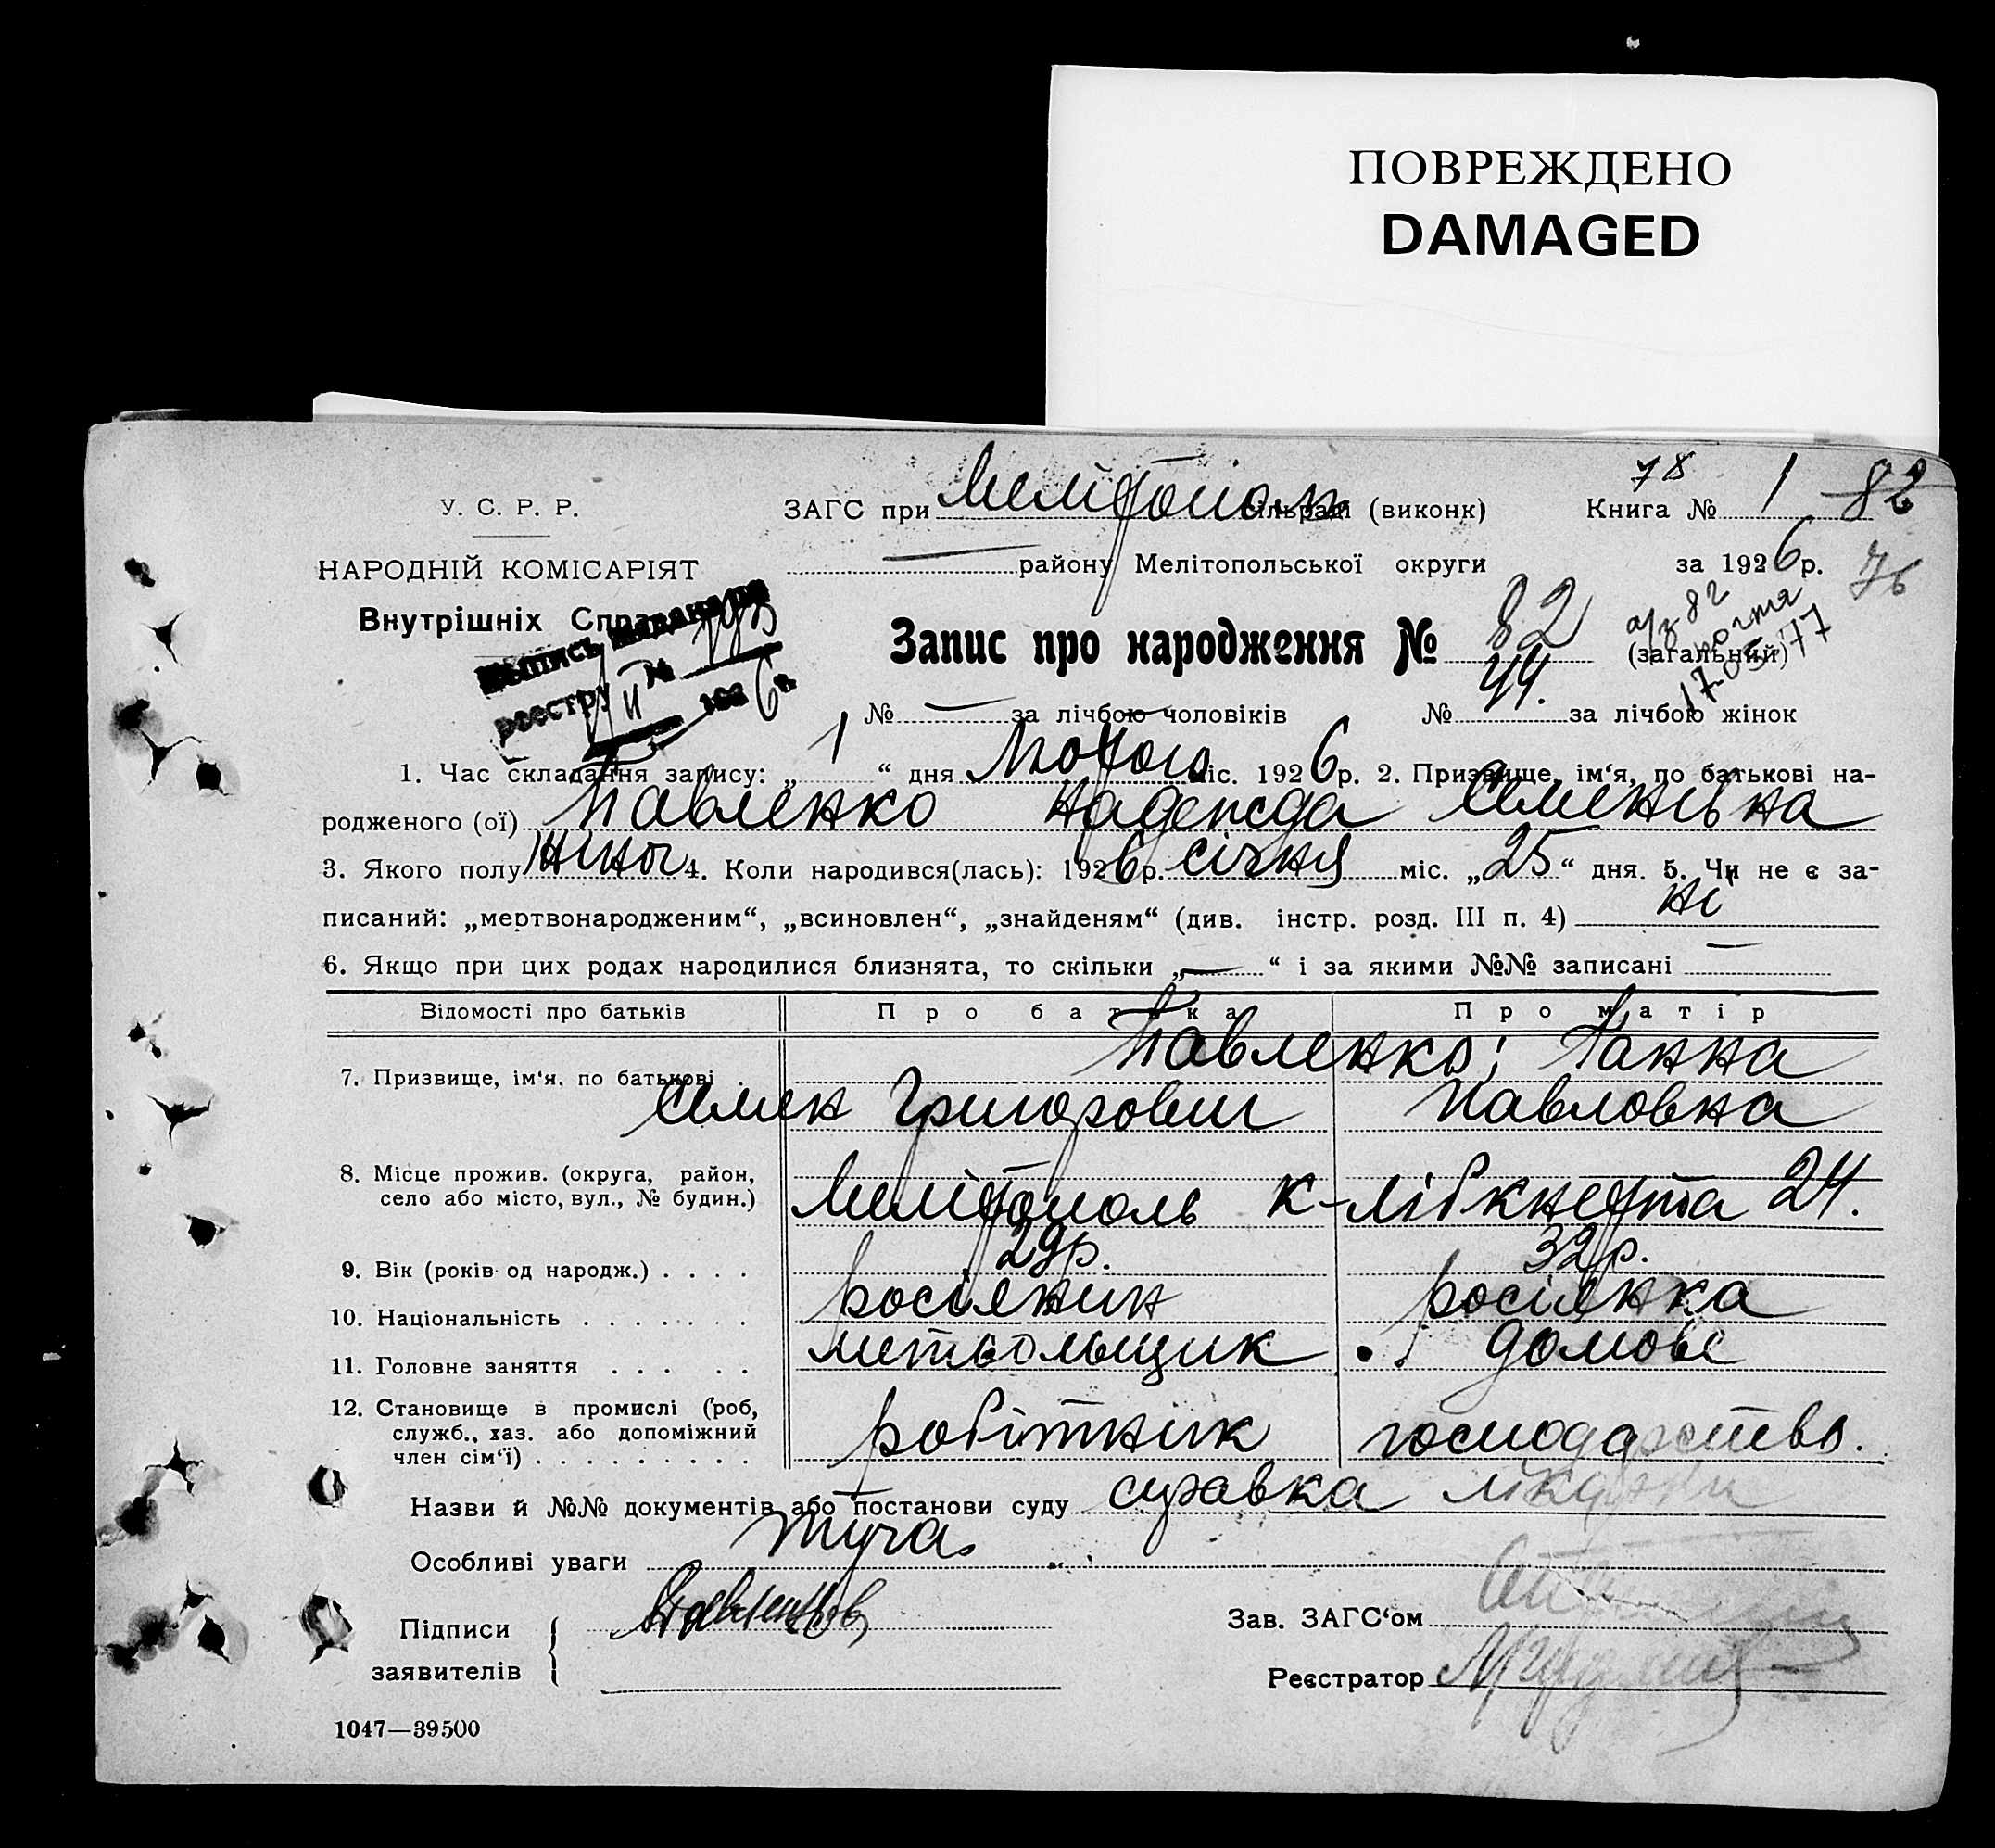 ПОВРЕЖДЕНО
DAMAGED
78
У. С. Р. Р. ЗАГС при Мелітополь сільраді (виконк) Книга № 1 82
НАРОДНІЙ КОМІСАРІЯТ — району Мелітопольської округи за 1926 р. 76
Внутрішніх Справ
Запис про народження № 82 (загальний)
а/з 82
почта
17.05.77
Выпись выдана по
реестру №
II 1926 г.
№ — за лічбою чоловіків № 44. за лічбою жінок
1. Час складання запису: „1“ дня Лютого міс. 1926 р. 2. Призвище, ім‘я, по батькові на-
родженого (ої) Павленко Надежда Семенівна
3. Якого полу жіноч 4. Коли народився(лась): 1926 р. січня міс. „25“ дня. 5. Чи не є за-
писаний: „мертвонародженим“, „всиновлен“, „знайденям“ (див. інстр. розд. III п. 4) ні
6. Якщо при цих родах народилися близнята, то скільки „—“ і за якими №№ записані —
Відомості про батьків Про батька Про матір
Павленко; Ганна
7. Призвище, ім‘я, по батькові .
Семен Григорович Павловна
8. Місце прожив. (округа, район,
село або місто, вул., № будин.) Мелітополь К-Лібкнехта 24.
9. Вік (років од народж.) . . . . 29 р. 32 р.
10. Національність . . . . . . . росіянин росіянка
11. Головне заняття . . . . . домове
12. Становище в промислі (роб,
служб., хаз. або допоміжний робітник господарство.
член сім‘ї) . . . . . . . . .
Назви й №№ документів або постанови суду справка лікарки
Особливі уваги
Підписи Зав. ЗАГС‘ом
заявителів Реєстратор
1047—39500